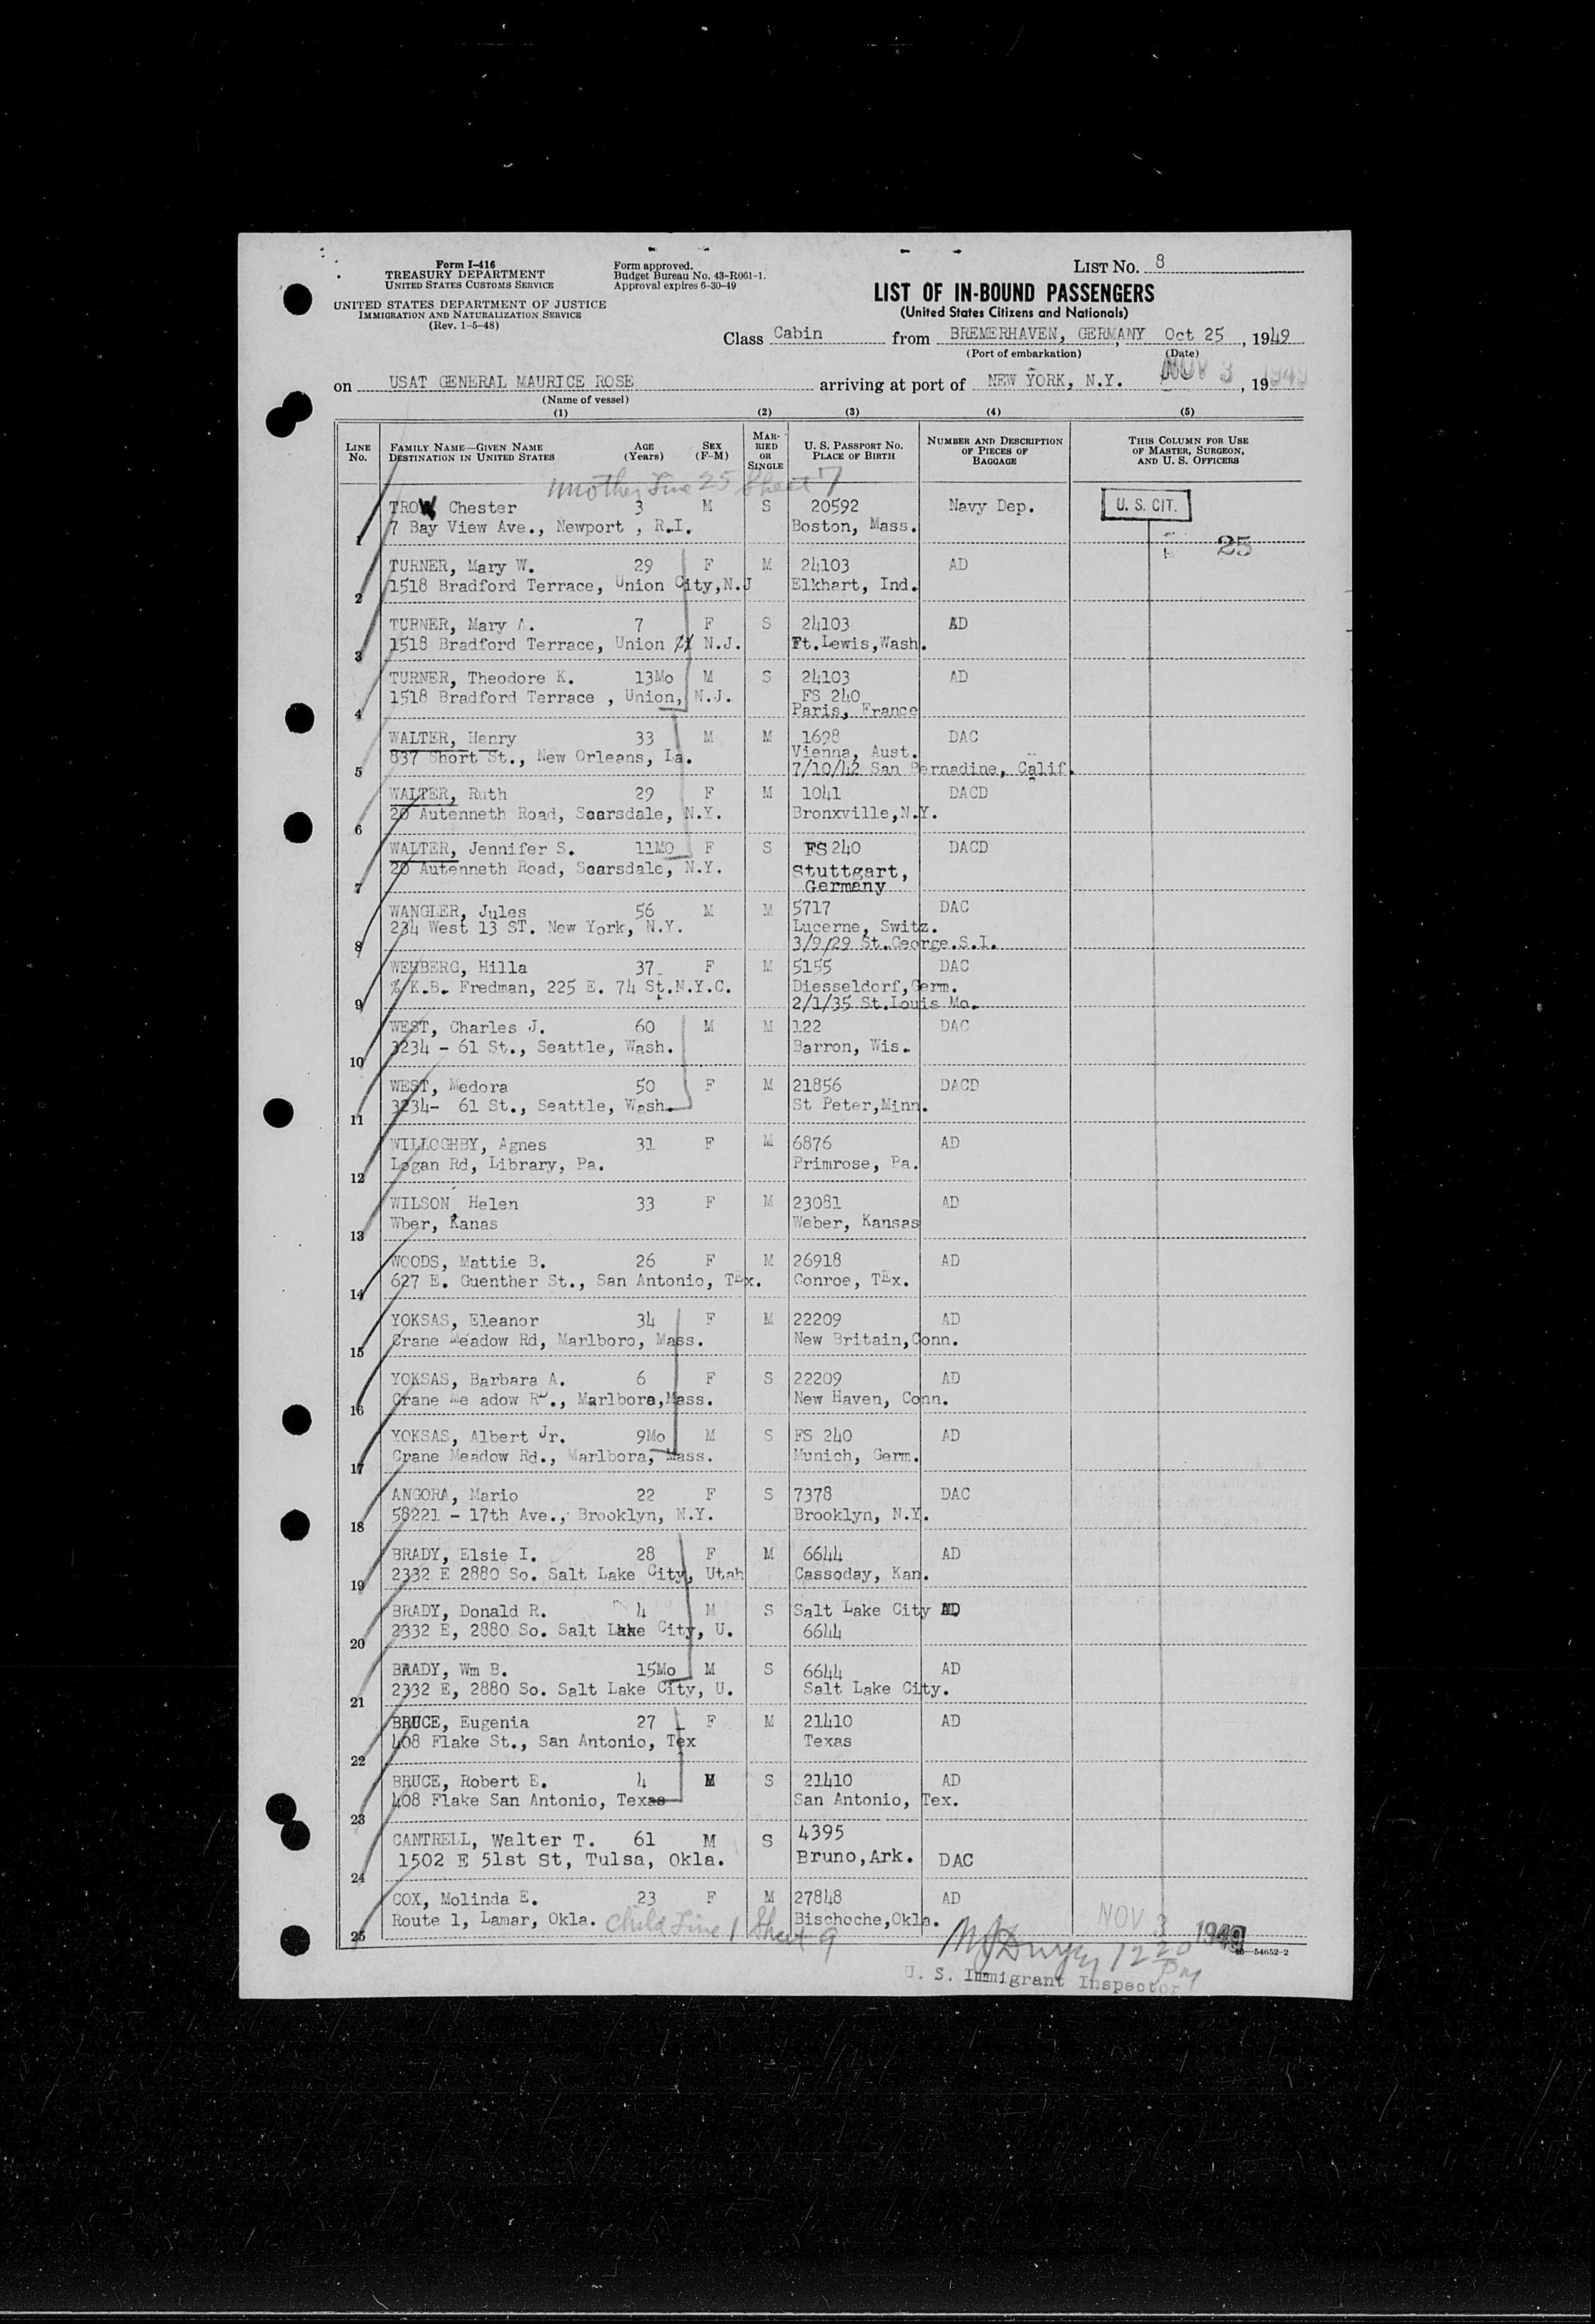 Form I-416
TREASURY DEPARTMENT
UNITED STATES CUSTOMS SERVICE
UNITED STATES DEPARTMENT OF JUSTICE
IMMIGRATION AND NATURALIZATION SERVICE
(Rev. 1-5-48)
Form approved.
Budget Bureau No. 43-R061-1.
Approval expires 6-30-49
LIST NO. 8
LIST OF IN-BOUND PASSENGERS
(United States Citizens and Nationals)
Class Cabin from BREMERHAVEN, GERMANY, Oct 25, 1949
(Port of embarkation) (Date)
on USAT GENERAL MAURICE ROSE arriving at port of NEW YORK, N.Y. NOV 3, 1949
(Name of vessel)
(1) (2) (3) (4) (5)
LINE NO. FAMILY NAME—GIVEN NAME DESTINATION IN UNITED STATES AGE (Years) SEX (F-M) MARRIED OR SINGLE U. S. PASSPORT NO. PLACE OF BIRTH NUMBER AND DESCRIPTION OF PIECES OF BAGGAGE THIS COLUMN FOR USE OF MASTER, SURGEON, AND U. S. OFFICERS
mother Line 25 Sheet 7
TROW Chester 3 M S 20592 Navy Dep. U. S. CIT.
1 7 Bay View Ave., Newport , R.I. Boston, Mass. 25
TURNER, Mary W. 29 F M 24103 AD
2 1518 Bradford Terrace, Union City,N.J Elkhart, Ind.
TURNER, Mary A. 7 F S 24103 AD
3 1518 Bradford Terrace, Union N.J. Ft.Lewis,Wash.
TURNER, Theodore K. 13Mo M S 24103 AD
1518 Bradford Terrace , Union, N.J. FS 240
4 Paris, France
WALTER, Henry 33 M M 1698 DAC
837 Short St., New Orleans, La. Vienna, Aust.
5 7/10/42 San Bernadine, Calif.
WALTER, Ruth 29 F M 1041 DACD
6 20 Autenneth Road, Scarsdale, N.Y. Bronxville,N.Y.
WALTER, Jennifer S. 11MO F S FS 240 DACD
20 Autenneth Road, Scarsdale, N.Y. Stuttgart,
7 Germany
WANGLER, Jules 56 M M 5717 DAC
234 West 13 ST. New York, N.Y. Lucerne, Switz.
8 3/9/29 St.George.S.I.
WEHBERG, Hilla 37 F M 5155 DAC
% K.B. Fredman, 225 E. 74 St.N.Y.C. Diesseldorf,Germ.
9 2/1/35 St.Louis Mo.
WEST, Charles J. 60 M M 122 DAC
10 3234 - 61 St., Seattle, Wash. Barron, Wis.
WEST, Medora 50 F M 21856 DACD
11 3234- 61 St., Seattle, Wash. St Peter,Minn.
WILLOGHBY, Agnes 31 F M 6876 AD
12 Logan Rd, Library, Pa. Primrose, Pa.
WILSON, Helen 33 F M 23081 AD
13 Wber, Kanas Weber, Kansas
WOODS, Mattie B. 26 F M 26918 AD
14 627 E. Guenther St., San Antonio, TEx. Conroe, TEx.
YOKSAS, Eleanor 34 F M 22209 AD
15 Crane Meadow Rd, Marlboro, Mass. New Britain,Conn.
YOKSAS, Barbara A. 6 F S 22209 AD
16 Crane Me adow RD., Marlboro,Mass. New Haven, Conn.
YOKSAS, Albert Jr. 9Mo M S FS 240 AD
17 Crane Meadow Rd., Marlbora, Mass. Munich, Germ.
ANGORA, Mario 22 F S 7378 DAC
18 58221 - 17th Ave., Brooklyn, N.Y. Brooklyn, N.Y.
BRADY, Elsie I. 28 F M 6644 AD
19 2332 E 2880 So. Salt Lake City, Utah Cassoday, Kan.
BRADY, Donald R. 4 M S Salt Lake City AD
20 2332 E, 2880 So. Salt Lake City, U. 6644
BRADY, Wm B. 15Mo M S 6644 AD
21 2332 E, 2880 So. Salt Lake City, U. Salt Lake City.
BRUCE, Eugenia 27 F M 21410 AD
22 408 Flake St., San Antonio, Tex Texas
BRUCE, Robert E. 4 M S 21410 AD
23 408 Flake San Antonio, Texas San Antonio, Tex.
CANTRELL, Walter T. 61 M S 4395
24 1502 E 51st St, Tulsa, Okla. Bruno,Ark. DAC
COX, Molinda E. 23 F M 27848 AD
25 Route 1, Lamar, Okla. Bischoche,Okla.
Child Line 1 Sheet 9
NOV 3 1949
16—54652-2
1220 PM
U. S. Immigrant Inspector